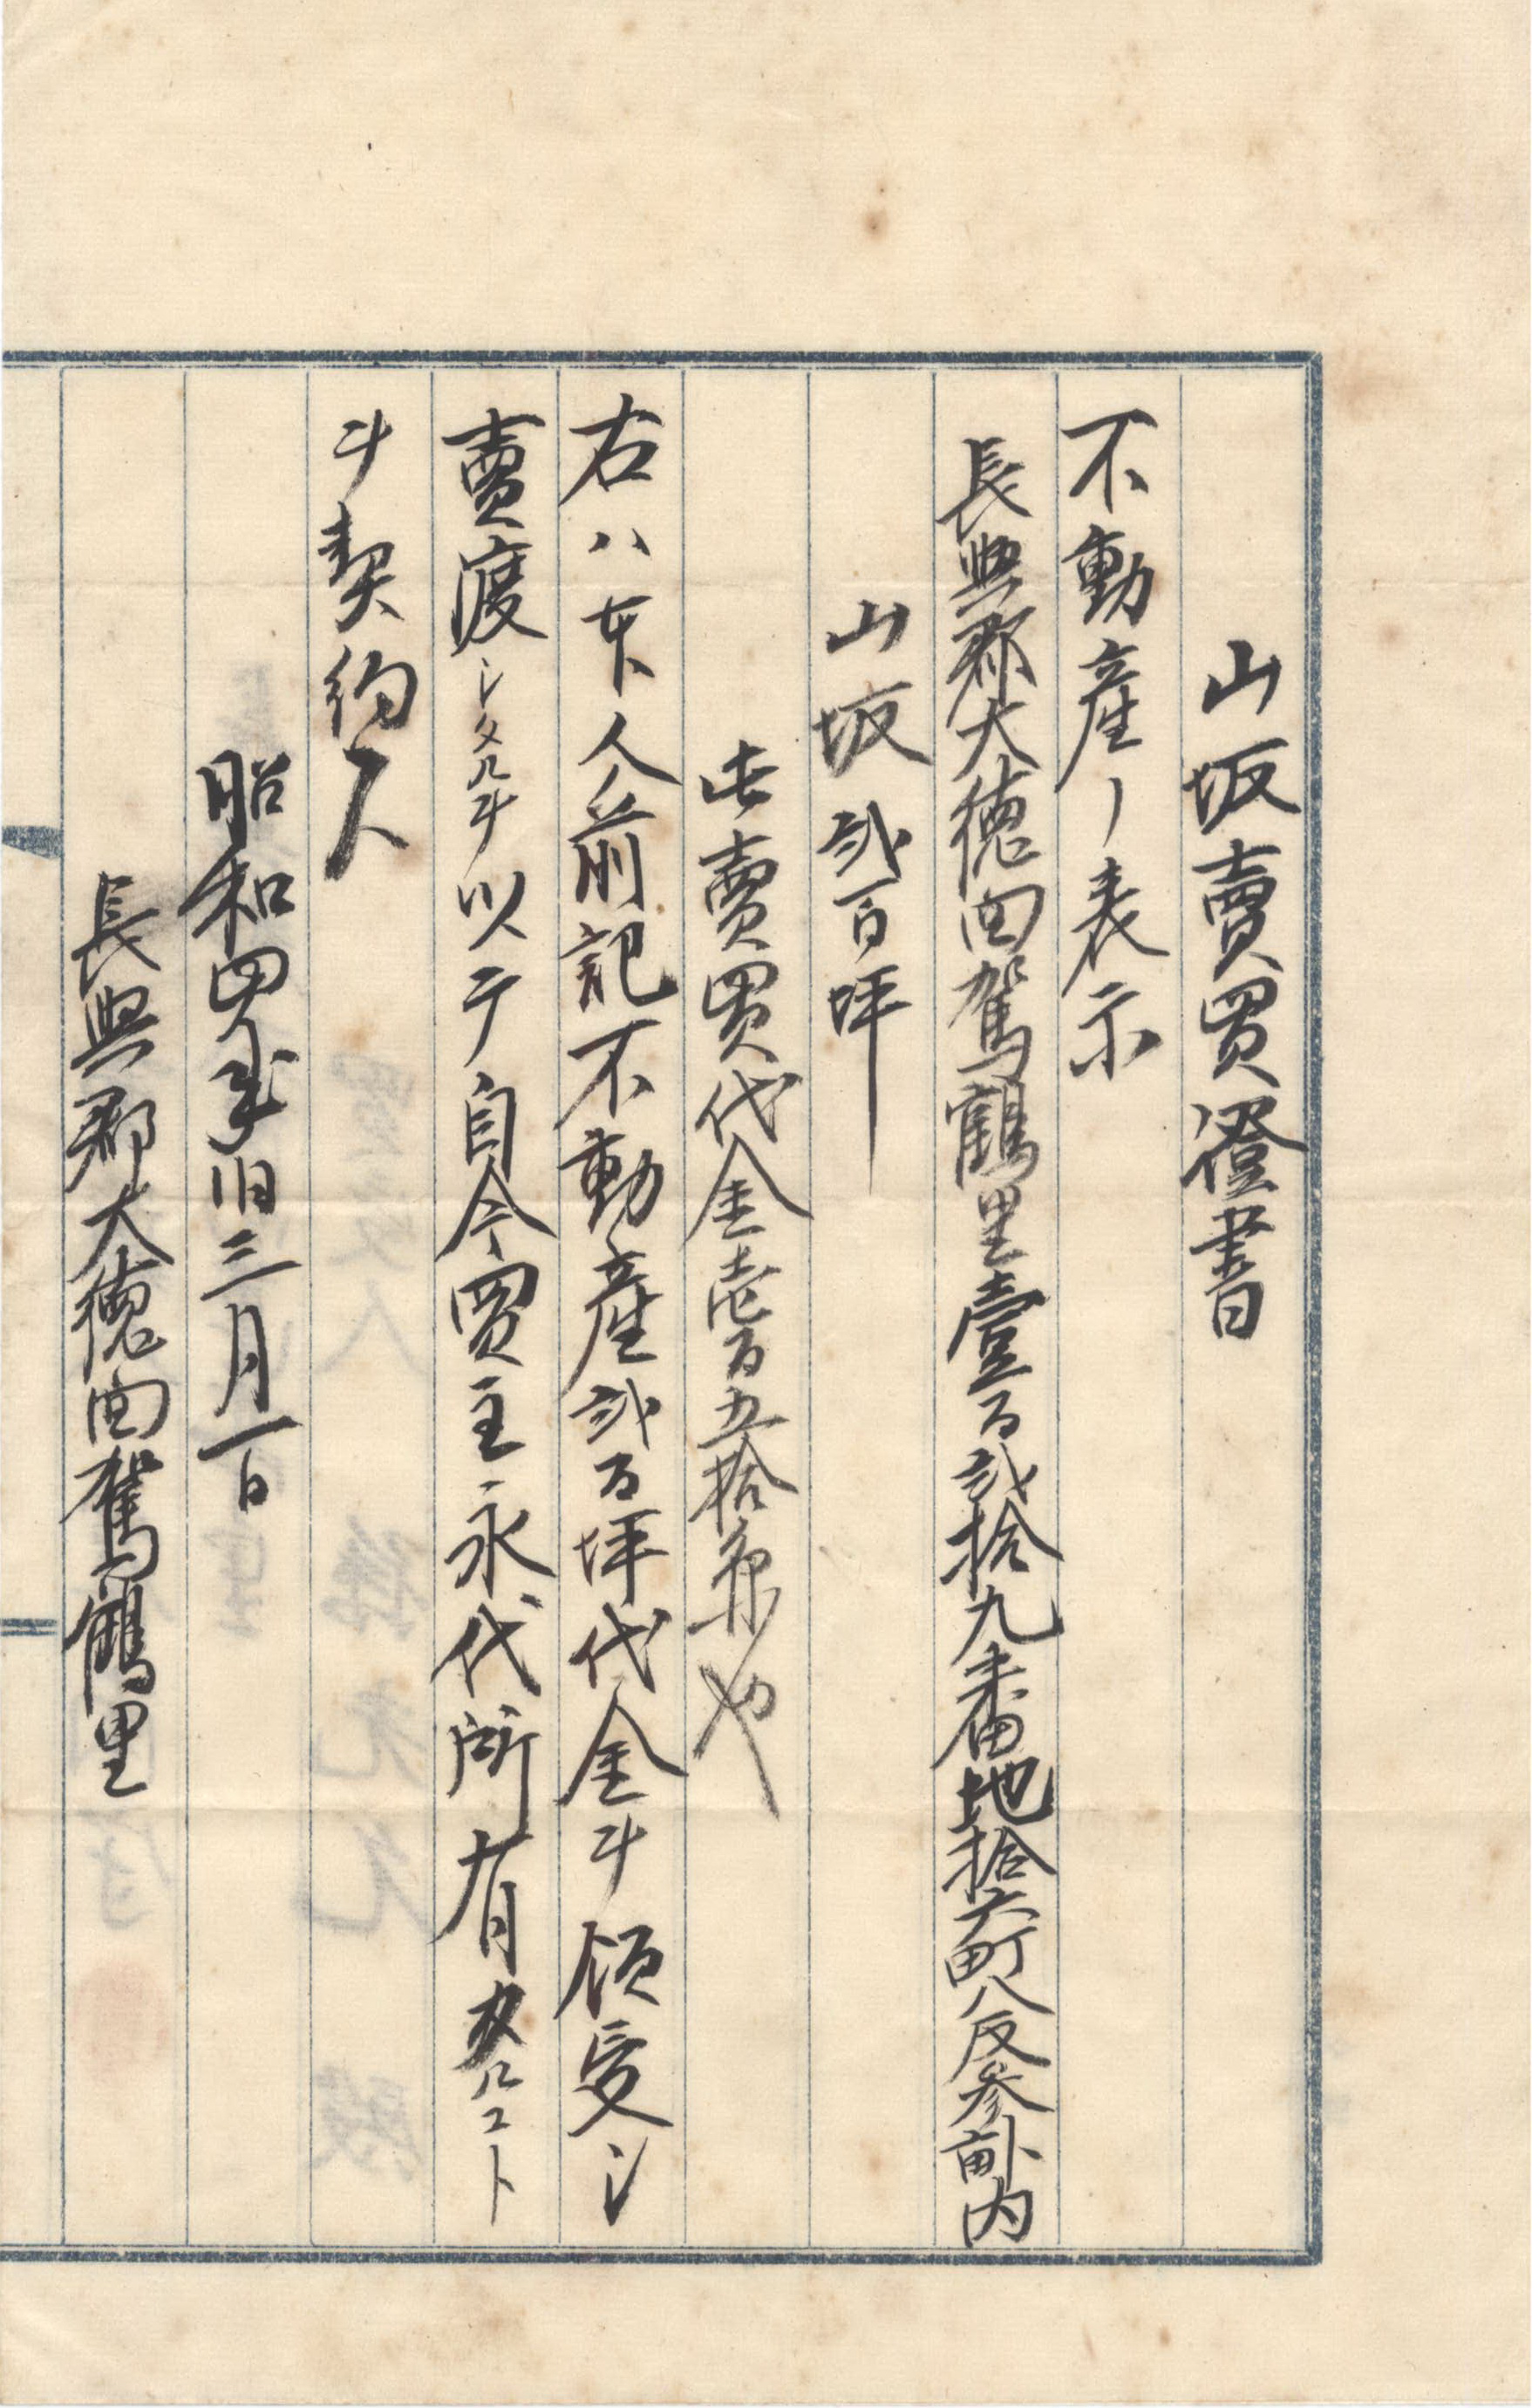 山坂賣買證書
不動産ノ表示
長興郡大德面駕鶴里壹百弐拾九番地拾六町八反參畝內
山坂弐百坪
此賣買代金壱百五拾円也
右ハ本人前記不動産弐百坪代金ヲ領受シ
賣渡シタルヲ以テ自今買主永代所有タルコト
ヲ契約ス
昭和四年旧三月一日
長興郡大德面駕鶴里